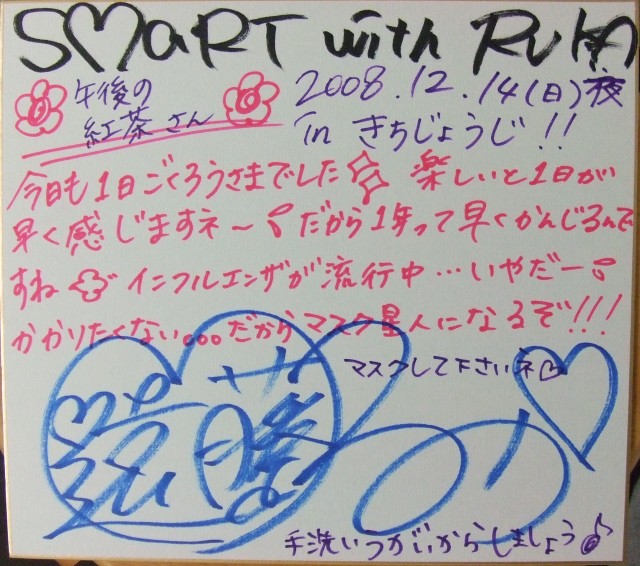 SMaRT with RUKA
午後の
紅茶さん
2008.12.14(日)夜
in きちじょうじ!!
今日も1日ごくろうさまでした 楽しいと1日が
早く感じますネ〜 だから1年って早くかんじるんで
すね インフルエンザが流行中…いやだー
かかりたくない。。。だからマスク星人になるぞ!!!
マスクして下さいネ
手洗いうがいからしましょう♪